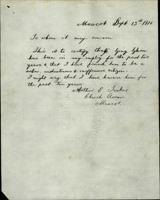 Mascot Sept 13th 1911
To whom it may concern
This is to certify that
has been in my employ for the past two
years & that I have found him to be a
sober, industrious &
I might say that I have known him for
the past ten years.
Arthur
Mascot